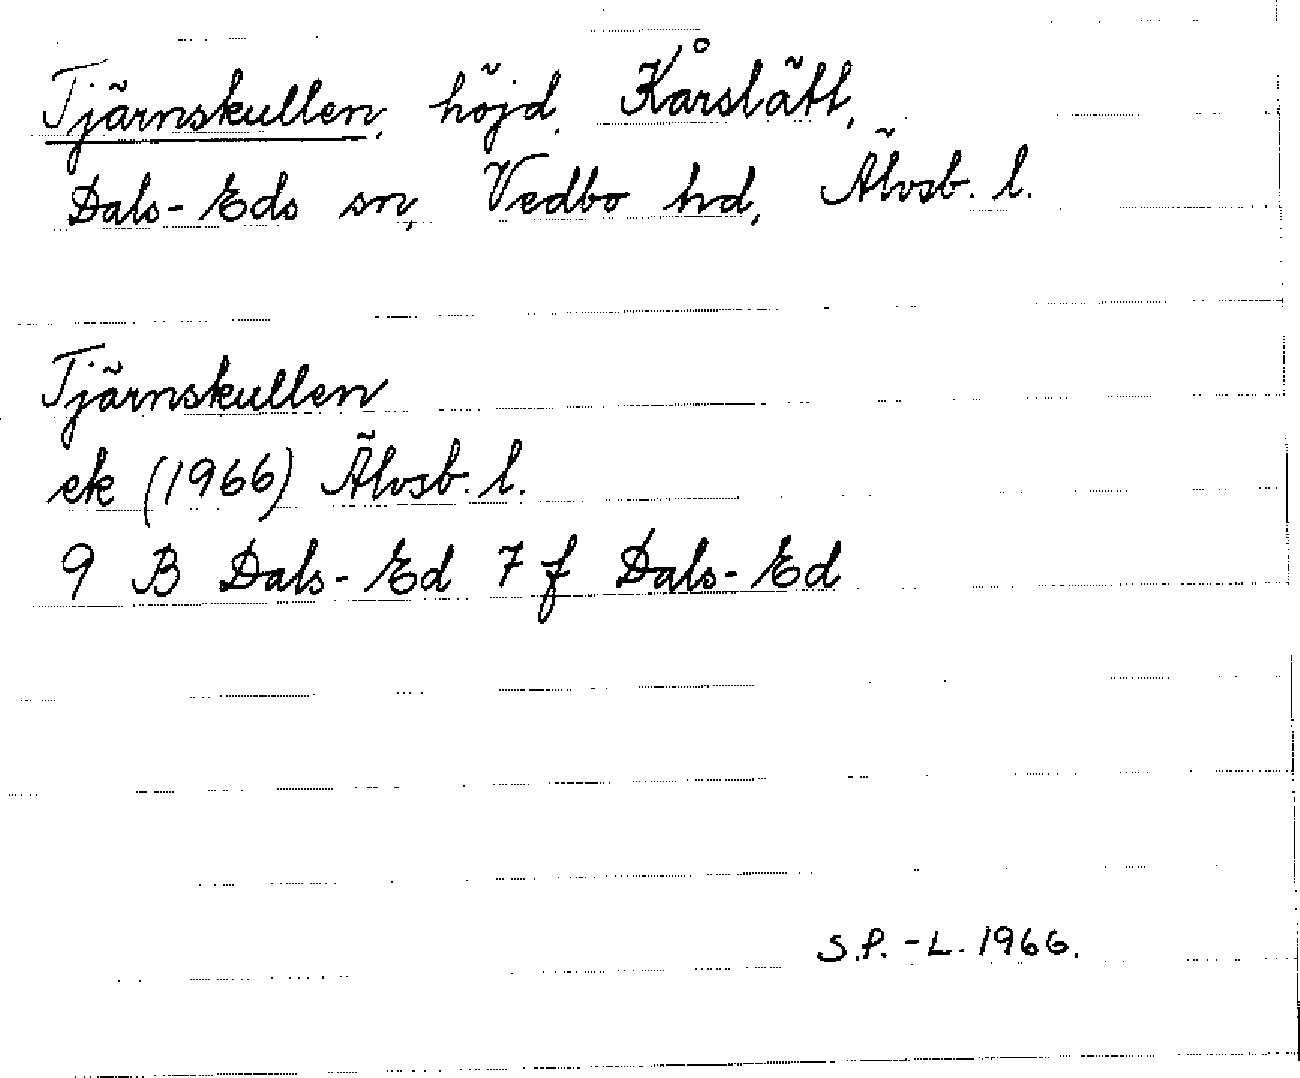 Tjärnskullen, höjd, Kårslätt,
Dals-Eds sn, Vedbo hd, Älvsb. l.
Tjärnskullen
ek (1966) Älvsb. l.
9 B Dals-Ed 7 f Dals-Ed
S.P.-L. 1966.